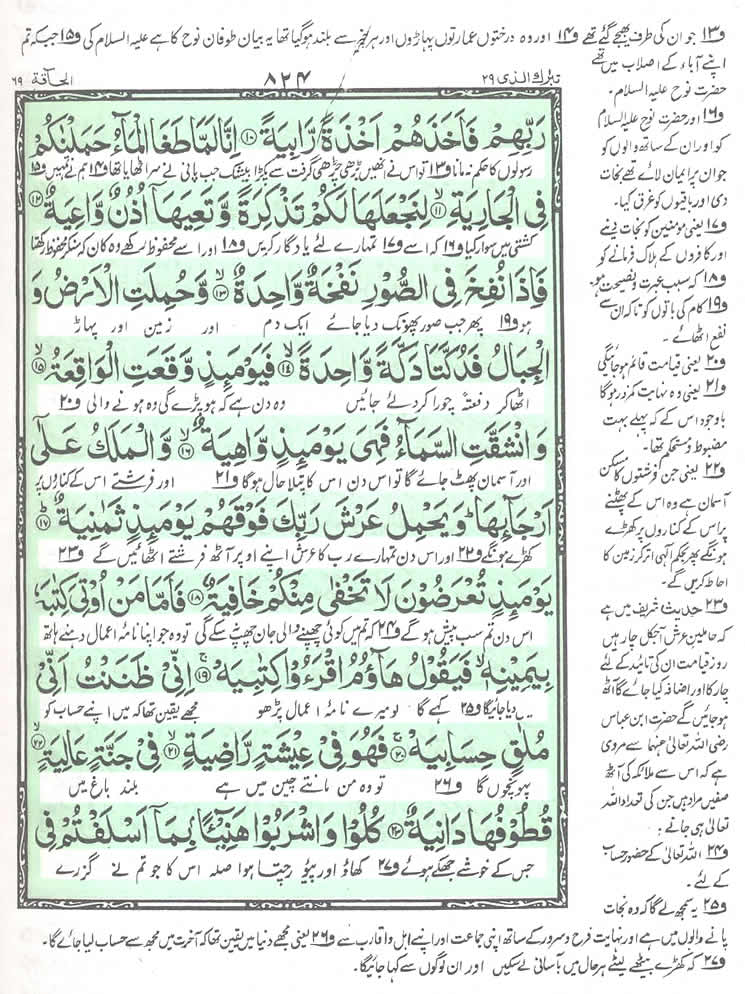 و۱۳ جو ان کی طرف بھیجے گئے تھے و۱۴ اور وہ درختوں عمارتوں پہاڑوں اور ہر چیز سے بلند ہوگیا تھا یہ بیان طوفان نوح کا ہے علیہ السلام کی و۱۵ جبکہ تم
تبٰرك الذى ۲۹
۸۲۴
الحآقة ۶۹
رَبِّهِمْ فَاَخَذَهُمْ اَخْذَةً رَّابِيَةً ﴿۱۰﴾ اِنَّا لَمَّا طَغَا الْمَآءُ حَمَلْنٰكُمْ
رسولوں کا حکم نہ مانا و۱۳ تو اس نے انھیں بڑھی چڑھی گرفت سے پکڑا بیشک جب پانی نے سر اٹھایا تھا و۱۴ ہم نے تمہیں و۱۵
فِى الْجَارِيَةِ ﴿۱۱﴾ لِنَجْعَلَهَا لَكُمْ تَذْكِرَةً وَّتَعِيَهَآ اُذُنٌ وَّاعِيَةٌ ﴿۱۲﴾
کشتی میں سوار کیا و۱۶ کہ اسے و۱۷ تمہارے لئے یادگار کریں و۱۸ اور اسے محفوظ رکھے وہ کان کہ سنکر محفوظ رکھتا
فَاِذَا نُفِخَ فِى الصُّوْرِ نَفْخَةٌ وَّاحِدَةٌ ﴿۱۳﴾ وَّحُمِلَتِ الْاَرْضُ وَ
ہو و۱۹ پھر جب صور پھونک دیا جائے ایک دم اور زمین اور پہاڑ
الْجِبَالُ فَدُكَّتَا دَكَّةً وَّاحِدَةً ﴿۱۴﴾ فَيَوْمَىِٕذٍ وَّقَعَتِ الْوَاقِعَةُ ﴿۱۵﴾
اٹھا کر دفعۃً چورا کر دئے جائیں وہ دن ہے کہ ہو پڑے گی وہ ہونے والی و۲۰
وَانْشَقَّتِ السَّمَآءُ فَهِىَ يَوْمَىِٕذٍ وَّاهِيَةٌ ﴿۱۶﴾ وَّالْمَلَكُ عَلٰٓى
اور آسمان پھٹ جائے گا تو اس دن اس کا پتلا حال ہوگا و۲۱ اور فرشتے اس کے کناروں پر
اَرْجَآىِٕهَا ؕ وَيَحْمِلُ عَرْشَ رَبِّكَ فَوْقَهُمْ يَوْمَىِٕذٍ ثَمٰنِيَةٌ ﴿۱۷﴾
کھڑے ہونگے و۲۲ اور اس دن تمہارے رب کا عرش اپنے اوپر آٹھ فرشتے اٹھائیں گے و۲۳
يَوْمَىِٕذٍ تُعْرَضُوْنَ لَا تَخْفٰى مِنْكُمْ خَافِيَةٌ ﴿۱۸﴾ فَاَمَّا مَنْ اُوْتِىَ كِتٰبَهٗ
اس دن تم سب پیش ہوگے و۲۴ کہ تم میں کوئی چھپنے والی جان چھپ نہ سکے گی تو وہ جو اپنا نامۂ اعمال دہنے ہاتھ
بِيَمِيْنِهٖ ۙ فَيَقُوْلُ هَآؤُمُ اقْرَءُوْا كِتٰبِيَهْ ﴿۱۹﴾ اِنِّىْ ظَنَنْتُ اَنِّىْ
میں دیا جائیگا و۲۵ کہے گا لو میرے نامۂ اعمال پڑھو مجھے یقین تھا کہ میں اپنے حساب کو
مُلٰقٍ حِسَابِيَهْ ﴿۲۰﴾ فَهُوَ فِىْ عِيْشَةٍ رَّاضِيَةٍ ﴿۲۱﴾ فِىْ جَنَّةٍ عَالِيَةٍ ﴿۲۲﴾
پہونچوں گا و۲۶ تو وہ من مانتے چین میں ہے بلند باغ میں
قُطُوْفُهَا دَانِيَةٌ ﴿۲۳﴾ كُلُوْا وَاشْرَبُوْا هَنِيْٓئًا ۢ بِمَآ اَسْلَفْتُمْ فِى
جس کے خوشے جھکے ہوئے و۲۷ کھاؤ اور پیو رچتا ہوا صلہ اس کا جو تم نے گزرے
اپنے آباء کے اصلاب میں تھے
حضرت نوح علیہ السلام ۔
و۱۶ اور حضرت نوح علیہ السلام
کو اور ان کے ساتھ والوں کو
جو ان پر ایمان لائے تھے نجات
دی اور باقیوں کو غرق کیا۔
و۱۷ یعنی مؤمنین کو نجات دینے
اور کافروں کے ہلاک فرمانے کو
و۱۸ کہ سبب عبرت و نصیحت ہو
و۱۹ کام کی باتوں کو تاکہ ان سے
نفع اٹھائے ۔
و۲۰ یعنی قیامت قائم ہوجائیگی
و۲۱ یعنی وہ نہایت کمزور ہوگا
باوجود اس کے کہ پہلے بہت
مضبوط و مستحکم تھا۔
و۲۲ یعنی جن فرشتوں کا مسکن
آسمان ہے وہ اس کے پھٹنے
پر اس کے کناروں پر کھڑے
ہونگے پھر بحکم الٰہی اتر کر زمین کا
احاطہ کریں گے۔
و۲۳ حدیث شریف میں ہے
کہ حاملین عرش آجکل چار ہیں
روز قیامت ان کی تائید کے لئے
چار کا اور اضافہ کیا جائے گا آٹھ
ہو جائیں گے حضرت ابن عباس
رضی اللہ تعالیٰ عنہما سے مروی
ہے کہ اس سے ملائکہ کی آٹھ
صفیں مراد ہیں جن کی تعداد اللہ
تعالیٰ ہی جانے ۔
و۲۴ اللہ تعالیٰ کے حضور حساب
کے لئے ۔
و۲۵ یہ سمجھ لے گا کہ وہ نجات
پانے والوں میں ہے اور نہایت فرح و سرور کے ساتھ اپنی جماعت اور اپنے اہل و اقارب سے و۲۶ یعنی مجھے دنیا میں یقین تھا کہ آخرت میں مجھ سے حساب لیا جائے گا۔
و۲۷ کہ کھڑے بیٹھے لیٹے ہر حال میں بآسانی لے سکیں اور ان لوگوں سے کہا جائیگا۔